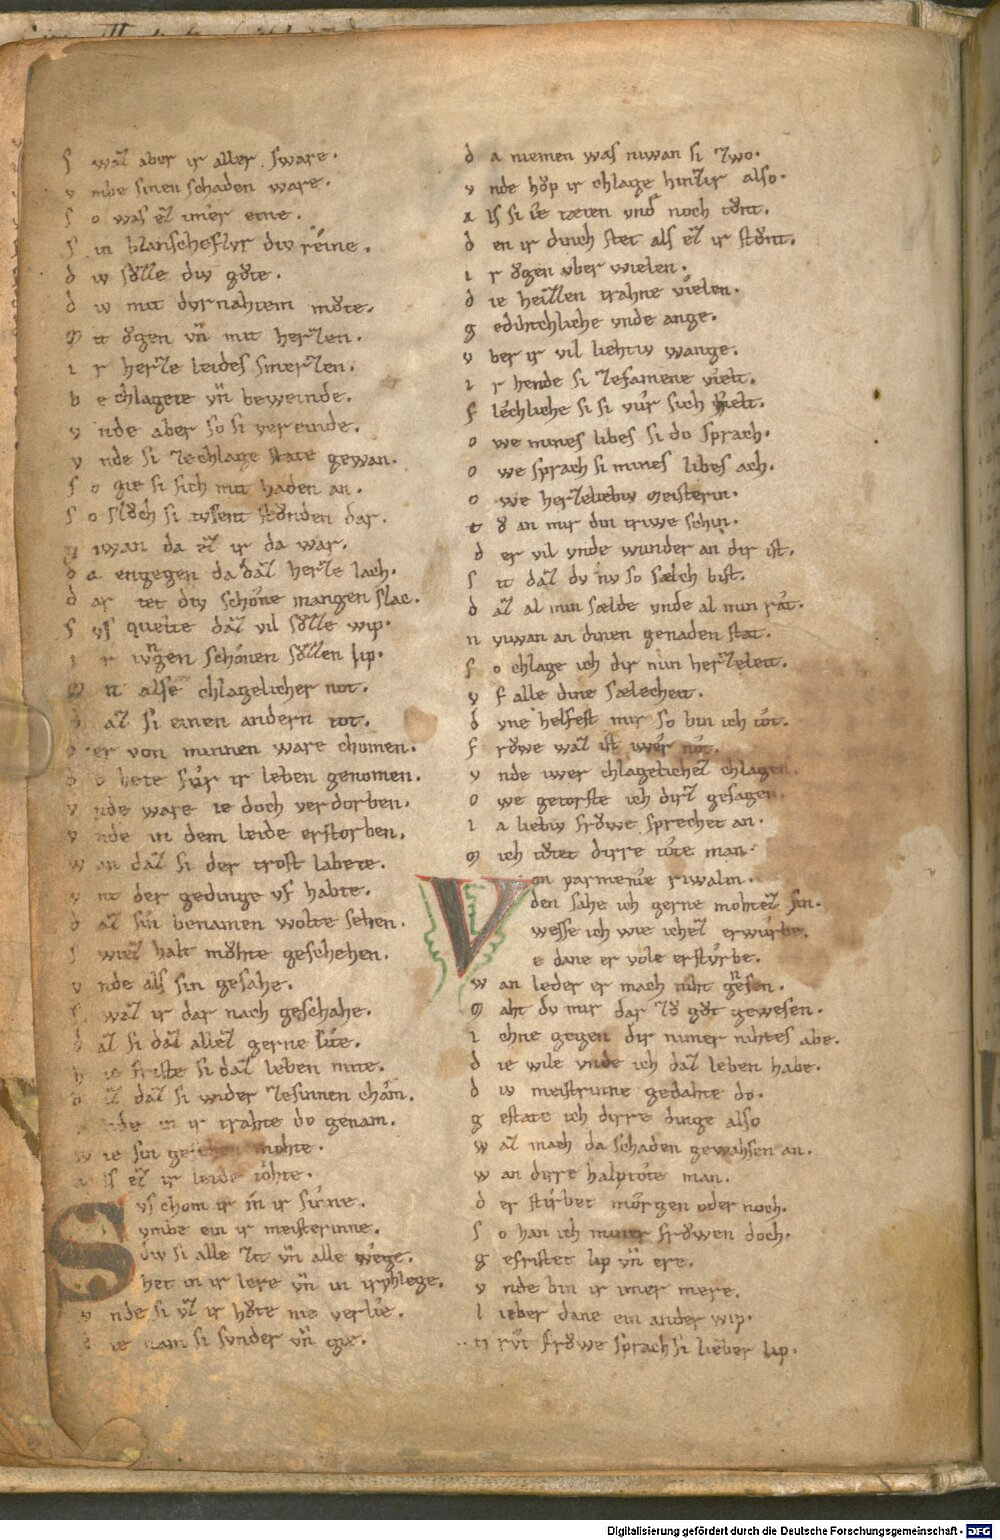 ſ waʒ aber ir aller ſware.
v mbe ſinen ſchaden ware.
ſ o waſ eʒ imer eine.
ſ in blanſcheflvr div reine.
d iv ſvͦʒʒe div gvͦte.
d iv mit dvrnahtem mvͦte.
m it oͮgen vn̄ mit herʒen.
i r herʒe leideſ ſmerʒen.
b e chlagete vn̄ beweinde.
v nde aber ſo ſi vereinde.
v nde ſi ʒechlage ſtate gewan.
ſ o gie ſi ſich mit handen an.
ſ o ſlvͦch ſi tvſent ſtvnden dar.
n iwan da eʒ ir da war.
d a engegen da daʒ herʒe lach.
d ar tet div ſchoͤne mangen ſlac.
ſ vſ quelte daʒ vil ſvͦʒʒe wip.
i r ivngen ſchoͤnen ſvͦʒʒen lip.
m it alſe chlagelicher not.
d aʒ ſi einen andern tot.
d er von minnen ware chomen.
d a hete fuͤr ir leben genomen.
v nde ware ie doch verdorben.
v nde in dem leide erſtorben.
w an daʒ ſi der troſt labete.
v nt der gedinge vf habte.
d aʒ ſi in benamen wolte ſehen.
ſ wieʒ halt mohte geſchehen.
v nde alſ ſi in geſahe.
ſ waʒ ir dar nach geſchahe.
d aʒ ſi daʒ alleʒ gerne lite.
h ie friſte ſi daʒ leben mite.
b iʒ daʒ ſi wider ʒeſinnen cham.
v nde in ir trahte do genam.
w ie ſi in geſehen mohte.
a lſ eʒ ir leide tohte.
Svſ chom ir in ir ſinne.
vmbe ein ir meiſterinne.
div ſi alle ʒit vn̄ alle wege.
het in ir lere vn̄ in ir phlege.
v nde ſi vʒ ir hvͦte nie verlie.
d ie nam ſi ſvnder vn̄ gie.
d a niemen waſ niwan ſi ʒwo.
v nde hvͦp ir chlage hinʒ ir alſo.
a lſ ſi ie taten vnd noch tvͦnt.
d en ir dinch ſtet alſ eʒ ir ſtvͦnt.
i r oͮgen vber wielen.
d ie heiʒʒen trahne vielen.
g edihtchliche vnde ange.
v ber ir vil liehtiv wange.
i r hende ſi ʒeſamene vielt.
f lechliche ſi ſi vuͤr ſich hielt.
o we mineſ libeſ ſi do ſprach.
o we ſprach ſi mineſ libeſ ach.
o we herʒeliebiv meiſterin.
t vͦ an mir din triwe ſchin.
d er vil vnde wunder an dir iſt.
ſ it daʒ dv nv ſo ſælich biſt.
d aʒ al min ſælde vnde al min rat.
n iwan an dinen genaden ſtat.
ſ o chlage ich dir min herʒeleit.
v f alle dine ſælecheit.
d vne helfeſt mir ſo bin ich tot.
f roͮwe waʒ iſt iwer not.
v nde iwer chlagelicheʒ chlagen.
o we getorſte ich dirʒ geſagen.
i a liebiv froͮwe ſprechet an.
m ich toͤtet dirre tote man.
Von parmenie riwalin.
den ſahe ich gerne mohteʒ ſin.
weſſe ich wie icheʒ erwurbe.
e dane er vole erſturbe.
w an leider er mach niht gneſen.
m aht dv mir dar ʒvͦ gvͦt geweſen.
i chne gegen dir nimer nihteſ abe.
d ie wile vnde ich daʒ leben habe.
d iv meiſtrinne gedahte do.
g eſtate ich dirre dinge alſo
w aʒ mach da ſchaden gewahſen an.
w an dirre halptote man.
d er ſtirbet morgen oder noch.
ſ o han ich miner froͮwen doch.
g efriſtet lip vn̄ ere.
v nde bin ir imer mere.
l ieber dane ein ander wip.
tr vͦt froͮwe ſprach ſi lieber lip.
Digitalisierung gefördert durch die Deutsche Forschungsgemeinschaft - DFG